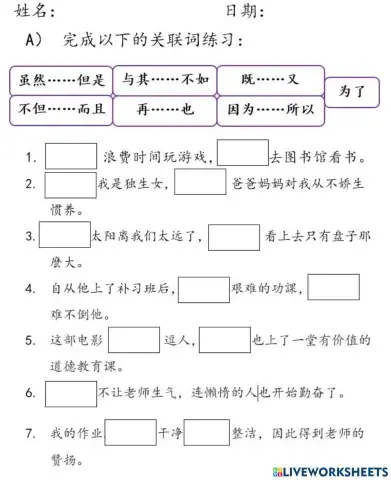 姓名： 日期：
A） 完成以下的关联词练习：
虽然……但是 与其……不如 既……又 为了
不但……而且 再……也 因为……所以
1. 浪费时间玩游戏， 去图书馆看书。
2. 我是独生女， 爸爸妈妈对我从不娇生
惯养。
3. 太阳离我们太远了， 看上去只有盘子那
麼大。
4. 自从他上了补习班后， 艰难的功課，
难不倒他。
5. 这部电影 逗人， 也上了一堂有价值的
道德教育课。
6. 不让老师生气，连懒惰的人也开始勤奋了。
7. 我的作业 干净 整洁，因此得到老师的
赞扬。
LIVEWORKSHEETS